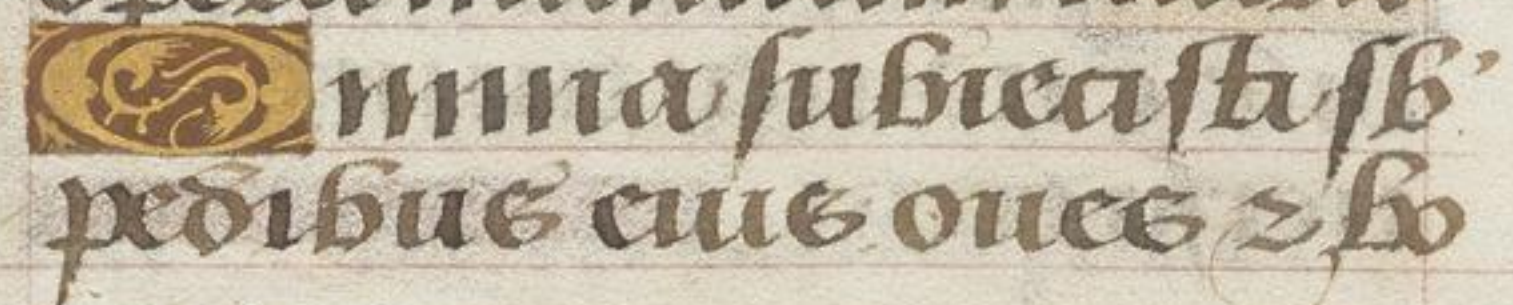 Omnia subiecisti sb'
pedibus eius oues ⁊ bo